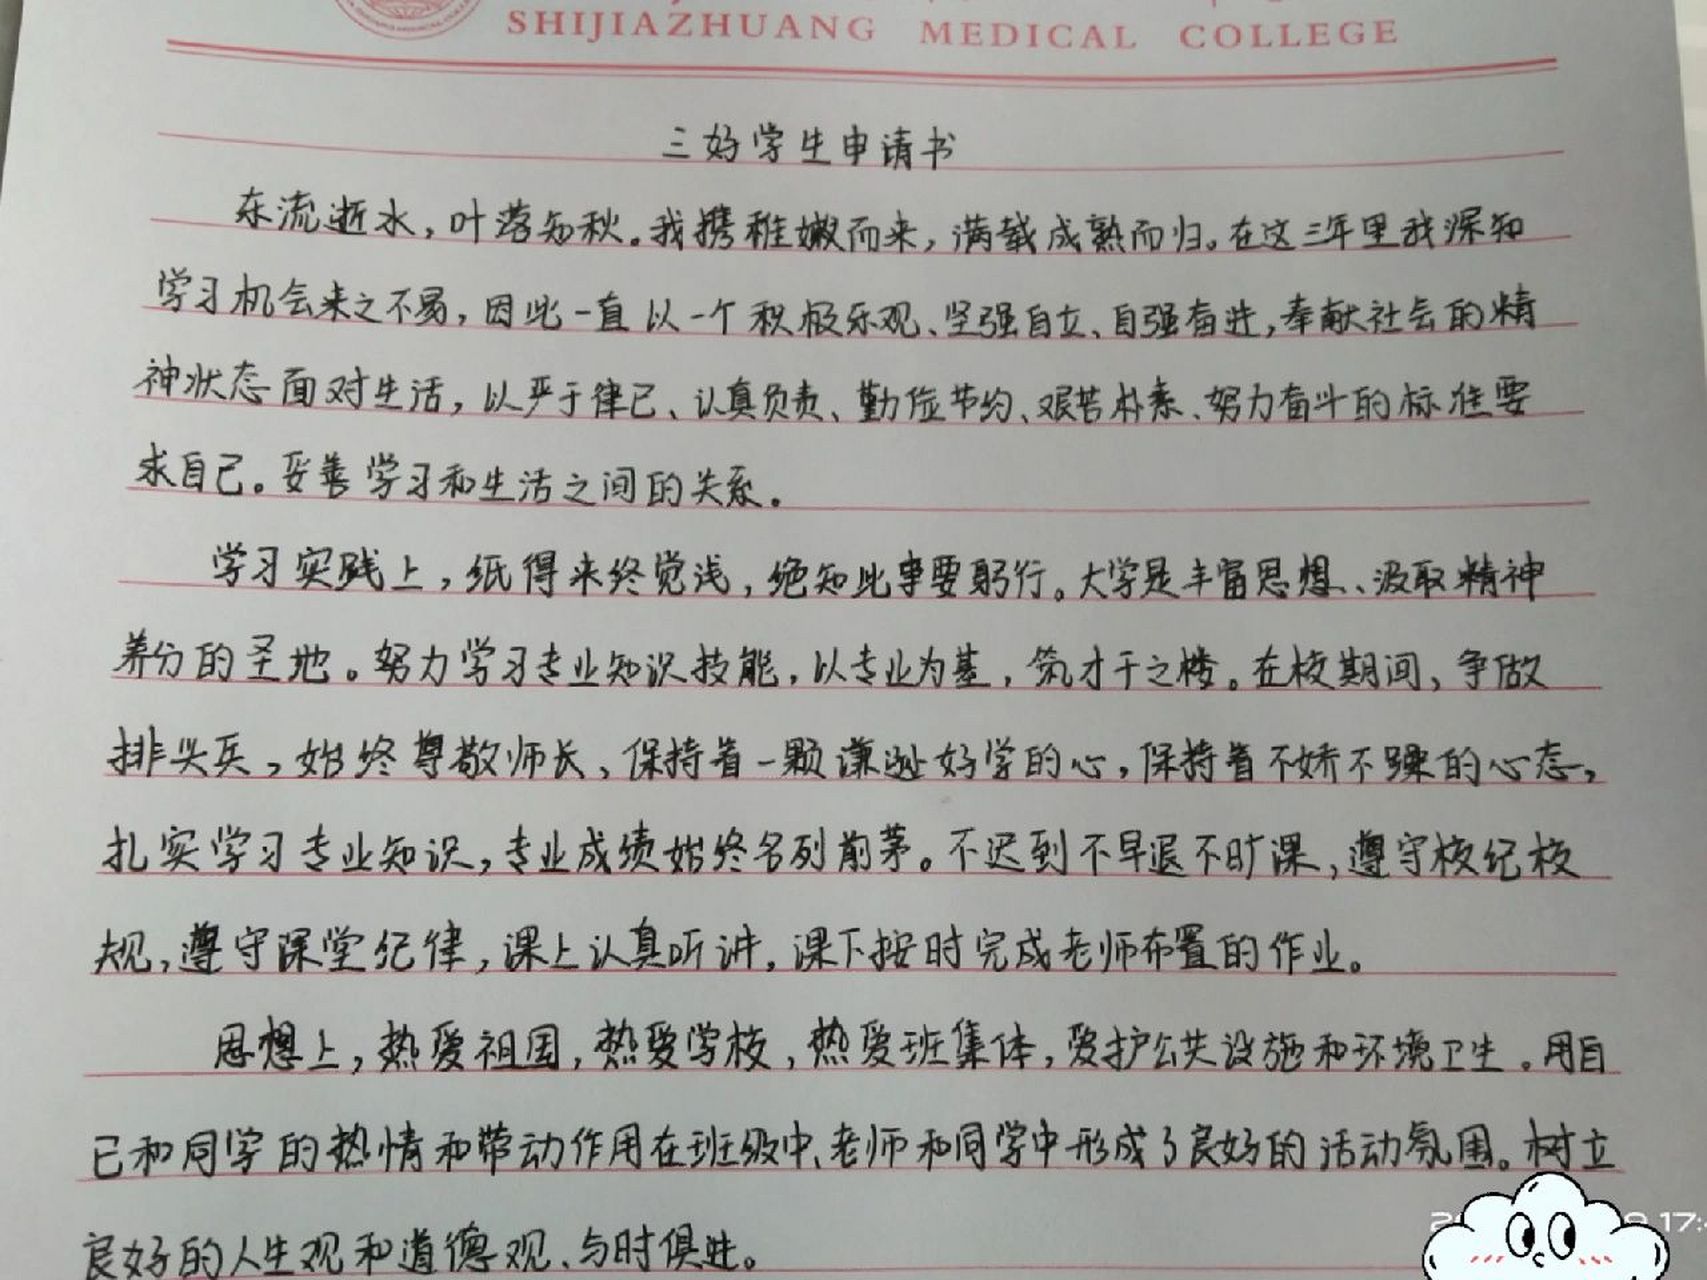 SHIJIAZHUANG MEDICAL COLLEGE
三好学生申请书
东流逝水，叶落知秋。我携稚嫩而来，满载成熟而归。在这三年里我深知
学习机会来之不易，因此一直以一个积极乐观、坚强自立、自强奋进，奉献社会的精
神状态面对生活，以严于律己、认真负责、勤俭节约、艰苦朴素、努力奋斗的标准要
求自己。妥善学习和生活之间的关系。
学习实践上，纸得来终觉浅，绝知此事要躬行。大学是丰富思想、汲取精神
养分的圣地。努力学习专业知识技能，以专业为基，筑才干之楼。在校期间，争做
排头兵，始终尊敬师长，保持着一颗谦逊好学的心，保持着不娇不躁的心态，
扎实学习专业知识，专业成绩始终名列前茅。不迟到不早退不旷课，遵守校纪校
规，遵守课堂纪律，课上认真听讲，课下按时完成老师布置的作业。
思想上，热爱祖国，热爱学校，热爱班集体，爱护公共设施和环境卫生。用自
己和同学的热情和带动作用在班级中、老师和同学中形成了良好的活动氛围。树立
良好的人生观和道德观、与时俱进。